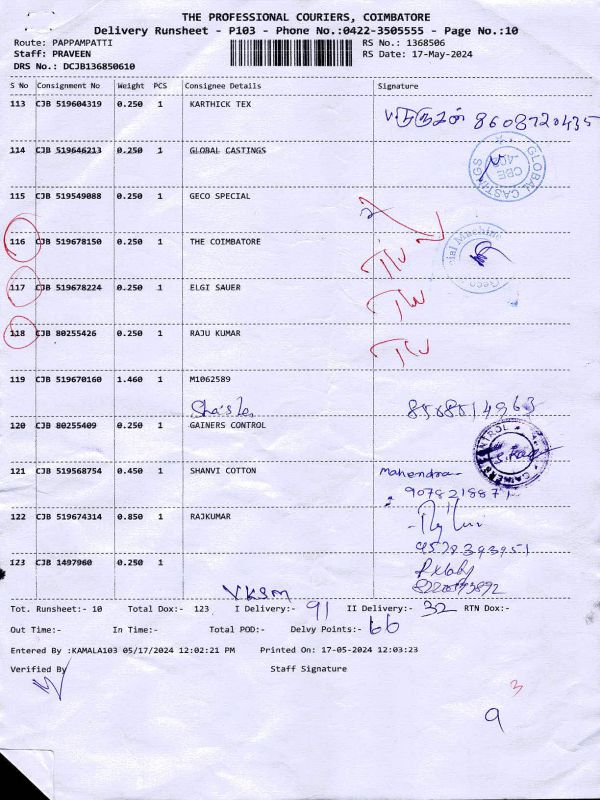 THE PROFESSIONAL COURIERS, COIMBATORE
Delivery Runsheet - P103 - Phone No.:0422-3505555 - Page No.:10
Route: PAPPAMPATTI RS No.: 1368506
Staff: PRAVEEN RS Date: 17-May-2024
DRS No.: DCJB136850610
S No Consignment No Weight PCS Consignee Details Signature
113 CJB 519604319 0.250 1 KARTHICK TEX
8608720435
114 CJB 519646213 0.250 1 GLOBAL CASTINGS
GLOBAL CASTINGS CBE
115 CJB 519549088 0.250 1 GECO SPECIAL
116 CJB 519678150 0.250 1 THE COIMBATORE
117 CJB 519678224 0.250 1 ELGI SAUER
118 CJB 80255426 0.250 1 RAJU KUMAR
119 CJB 519670160 1.460 1 M1062589
120 CJB 80255409 0.250 1 GAINERS CONTROL
GAINERS CONTROL
121 CJB 519568754 0.450 1 SHANVI COTTON Mahendra
9078218871
122 CJB 519674314 0.850 1 RAJKUMAR
9528393951
123 CJB 1497960 0.250 1
VKSM
Tot. Runsheet:- 10 Total Dox:- 123 I Delivery:- 91 II Delivery:- 32 RTN Dox:-
Out Time:- In Time:- Total POD:- Delvy Points:- 66
Entered By :KAMALA103 05/17/2024 12:02:21 PM Printed On: 17-05-2024 12:03:23
Verified By Staff Signature
3
9